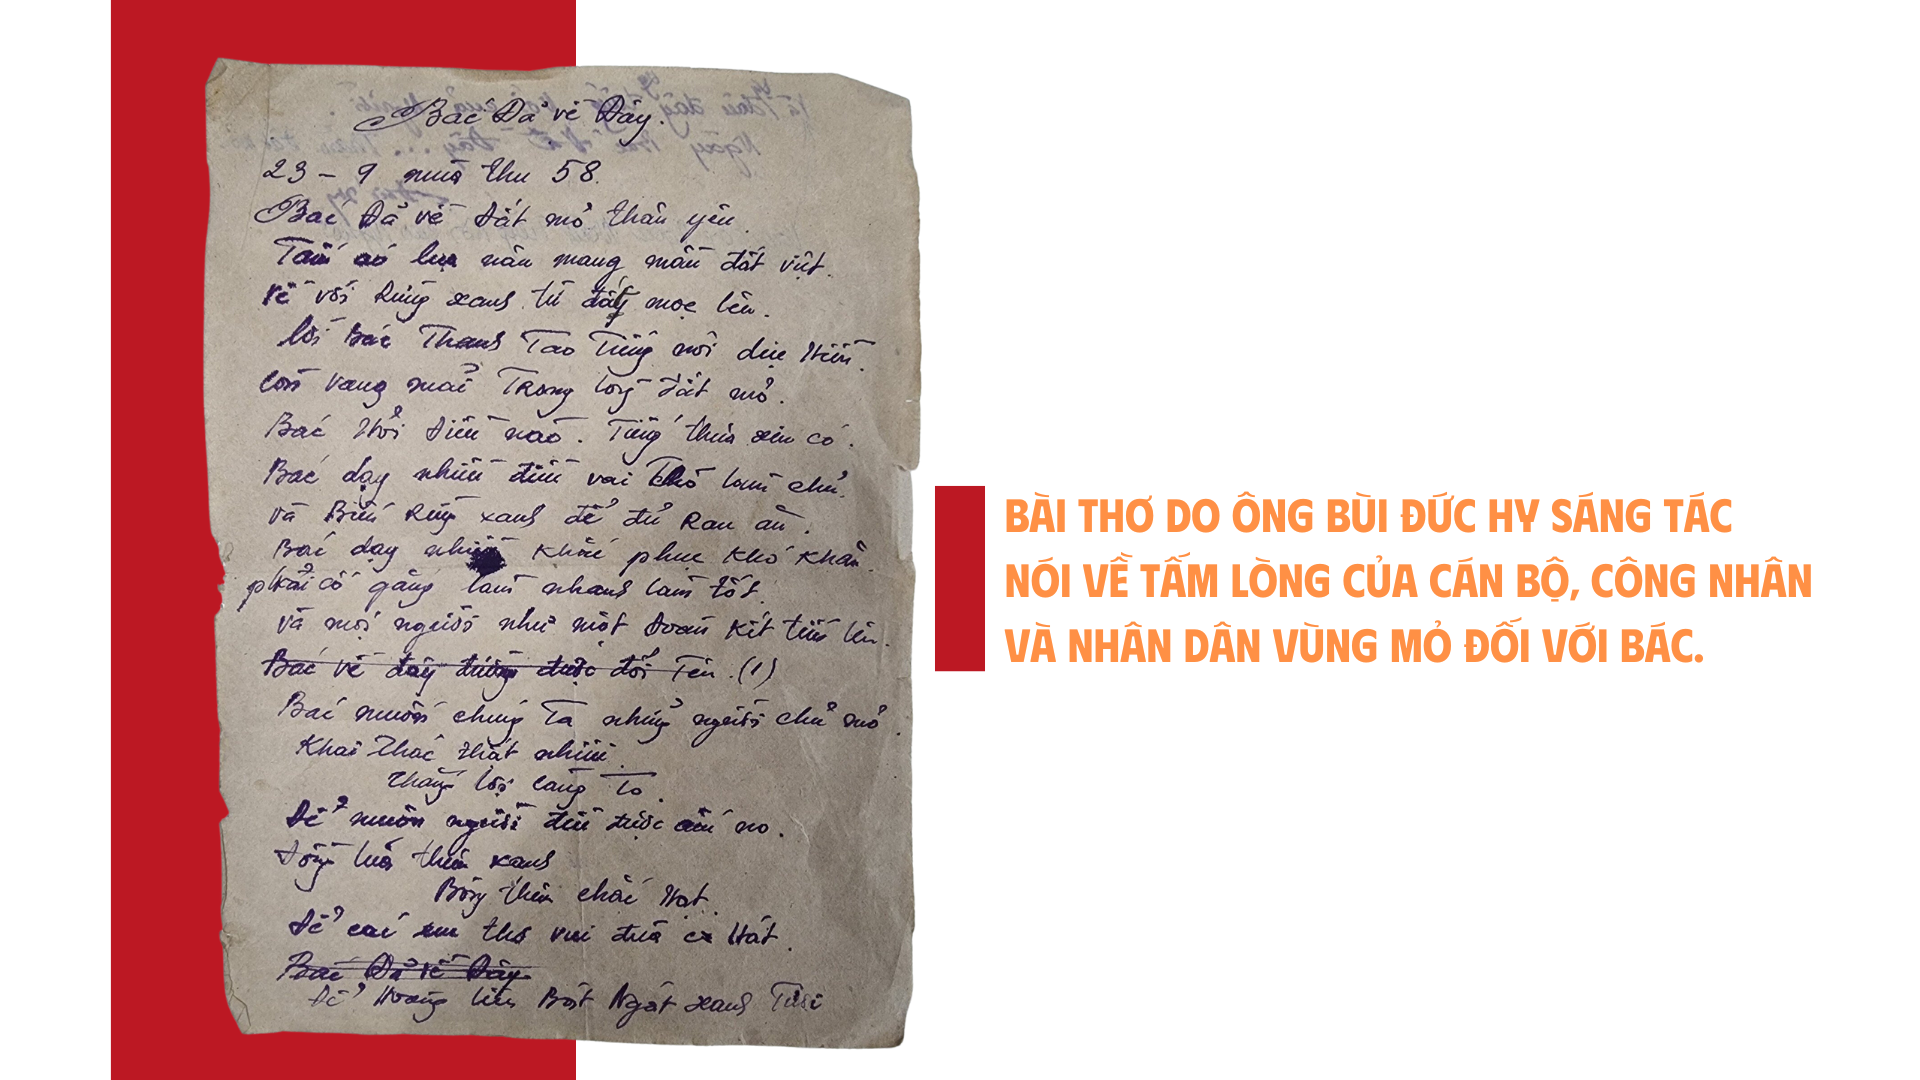 Bác Đả về Đây.
23 - 9 mùa thu 58.
Bác Đả về Đất mỏ thân yêu.
Tấm áo lụa nâu mang mầu đất việt.
Về với Rừng xanh từ đấy mọc lên.
lời Bác Thanh Tao Tiếng nói dịu Hiền.
Còn vang mãi Trong lòng đất mỏ.
Bác Hỏi điều nào. Tiếng thưa xin có.
Bác dạy nhiều điều vai Thợ làm chủ.
và Biến Rừng xanh để đủ Rau ăn.
Bác dạy nhiều khắc phục khó khăn.
phải cố gắng làm nhanh làm tốt.
và mọi người như một đoàn kết tiến lên.
Bác về đây đường được đổi Tên. (1)
Bác muốn chúng Ta những người chủ mỏ.
Khai Thác thật nhiều.
thắng lợi càng To.
Để muôn người đều được ấm no.
Đồng lúa thêm xanh
Bông thêm chắc Hạt.
Để các em thơ vui đùa ca Hát.
Bác Đả về Đây.
Để Hoàng liên Bát Ngát xanh Tươi
BÀI THƠ DO ÔNG BÙI ĐỨC HY SÁNG TÁC
NÓI VỀ TẤM LÒNG CỦA CÁN BỘ, CÔNG NHÂN
VÀ NHÂN DÂN VÙNG MỎ ĐỐI VỚI BÁC.